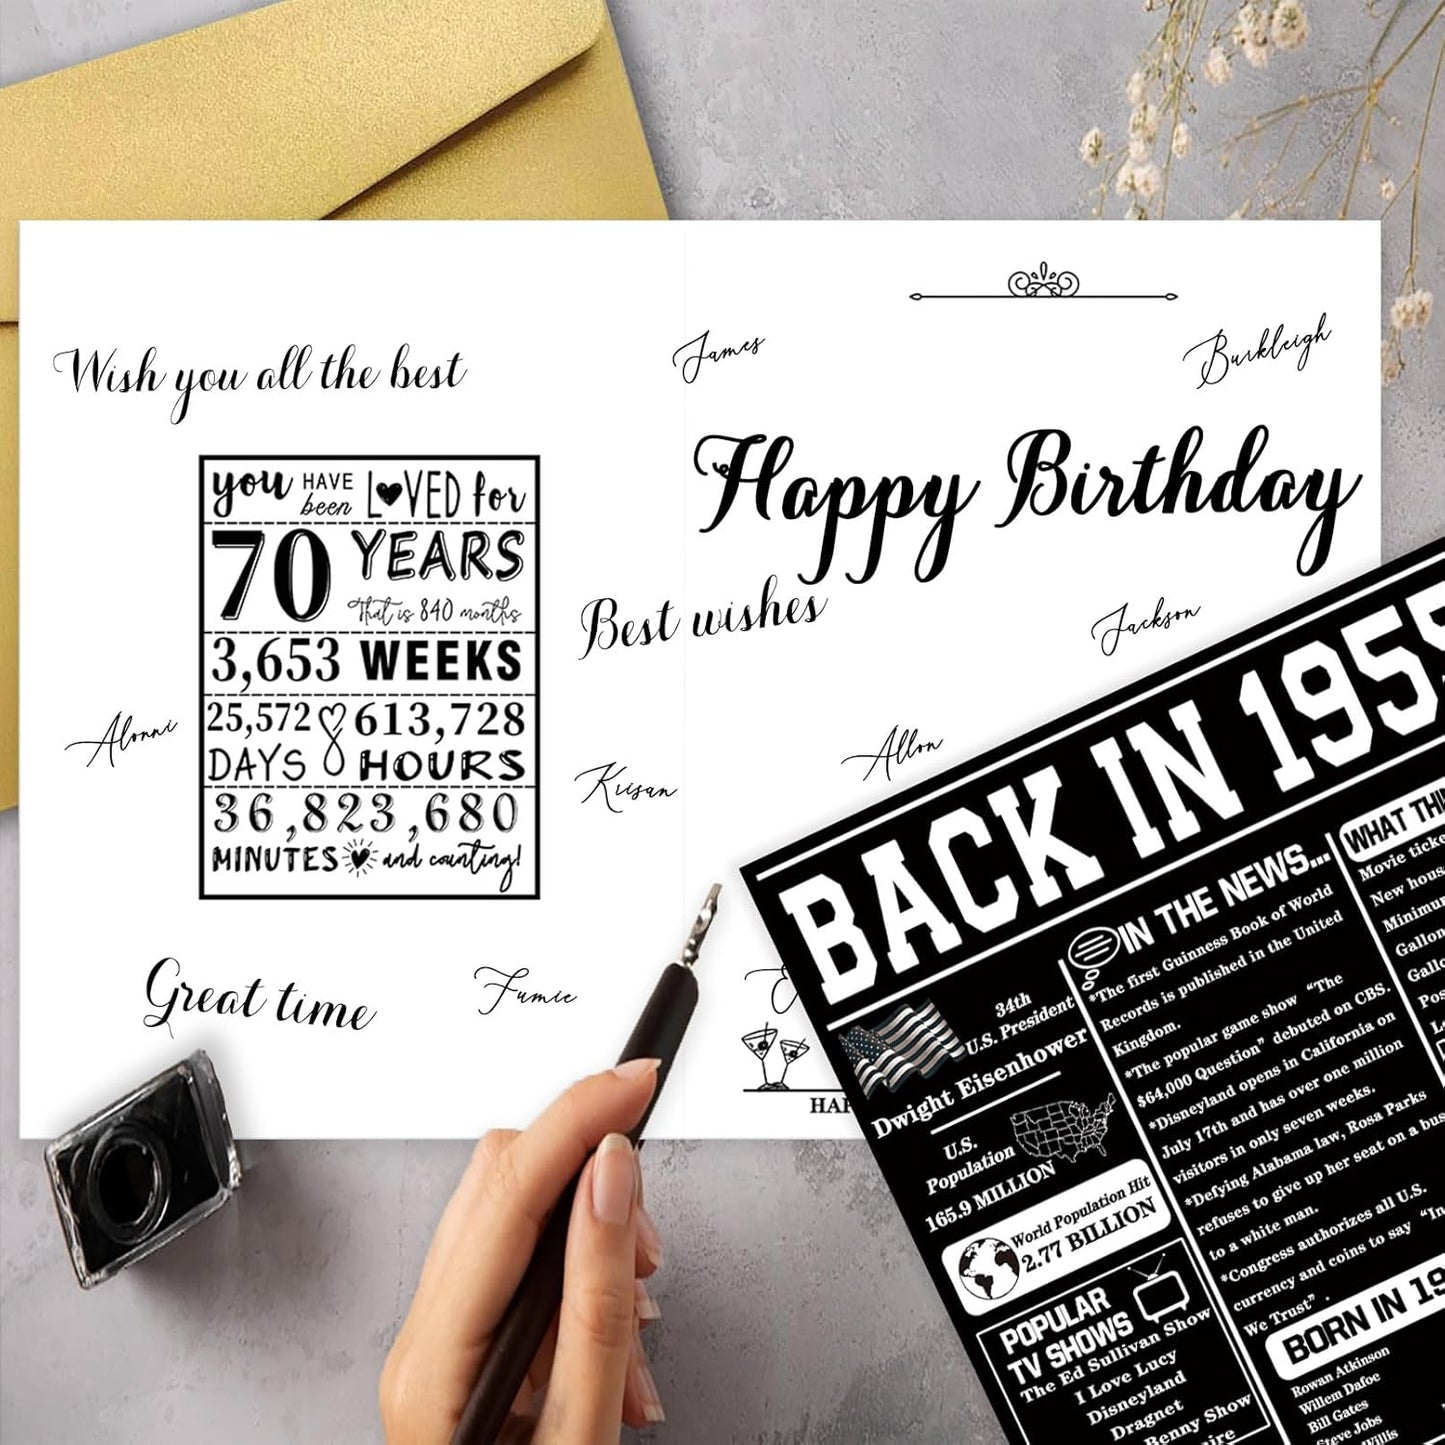 Wish you all the best
James
Burkleigh
Happy Birthday
you HAVE been LOVED for
70 YEARS
That is 840 months
3,653 WEEKS
25,572 DAYS
613,728 HOURS
36,823,680
MINUTES and counting!
Best wishes
Jackson
Alonni
Kiisan
Allon
Great time
Fumie
HAP
BACK IN 1955
34th
U.S. President
Dwight Eisenhower
U.S.
Population
165.9 MILLION
World Population Hit
2.77 BILLION
POPULAR
TV SHOWS
The Ed Sullivan Show
I Love Lucy
Disneyland
Dragnet
Benny Show
ire
IN THE NEWS...
*The first Guinness Book of World
Records is published in the United
Kingdom.
*The popular game show "The
$64,000 Question" debuted on CBS.
*Disneyland opens in California on
July 17th and has over one million
visitors in only seven weeks.
*Defying Alabama law, Rosa Parks
refuses to give up her seat on a bus
to a white man.
*Congress authorizes all U.S.
currency and coins to say "In
We Trust".
BORN IN 19
Rowan Atkinson
Willem Dafoe
Bill Gates
Steve Jobs
Willis
WHAT THI
Movie ticke
New hous
Minimum
Gallon
Gallo
Pos